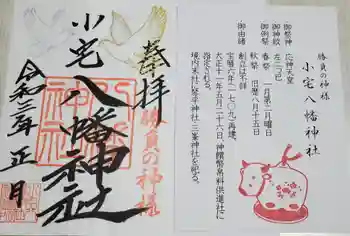 奉拝
勝負の神様
小宅八幡神社
令和三年 正月
勝負の神様
小宅八幡神社
御祭神 応神天皇
御神紋 左三つ巴
御例祭 春祭 二月第二日曜日
秋祭 旧暦八月十五日
御由緒 創立は不詳
宝暦六年(一七〇九)再建。
大正十一年五月二十六日、神饌幣帛料供進社に
指定される。
境内末社に琴平神社・三峯神社を祀る。